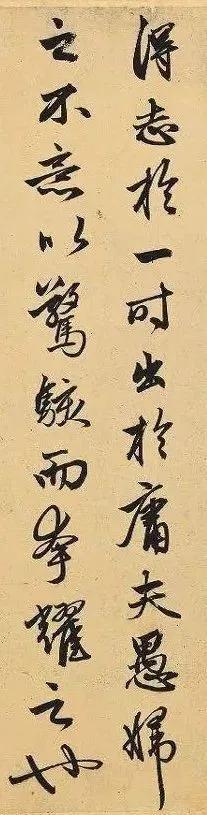 得志於一时出於庸夫愚婦
之不意以驚駭而夸耀之也